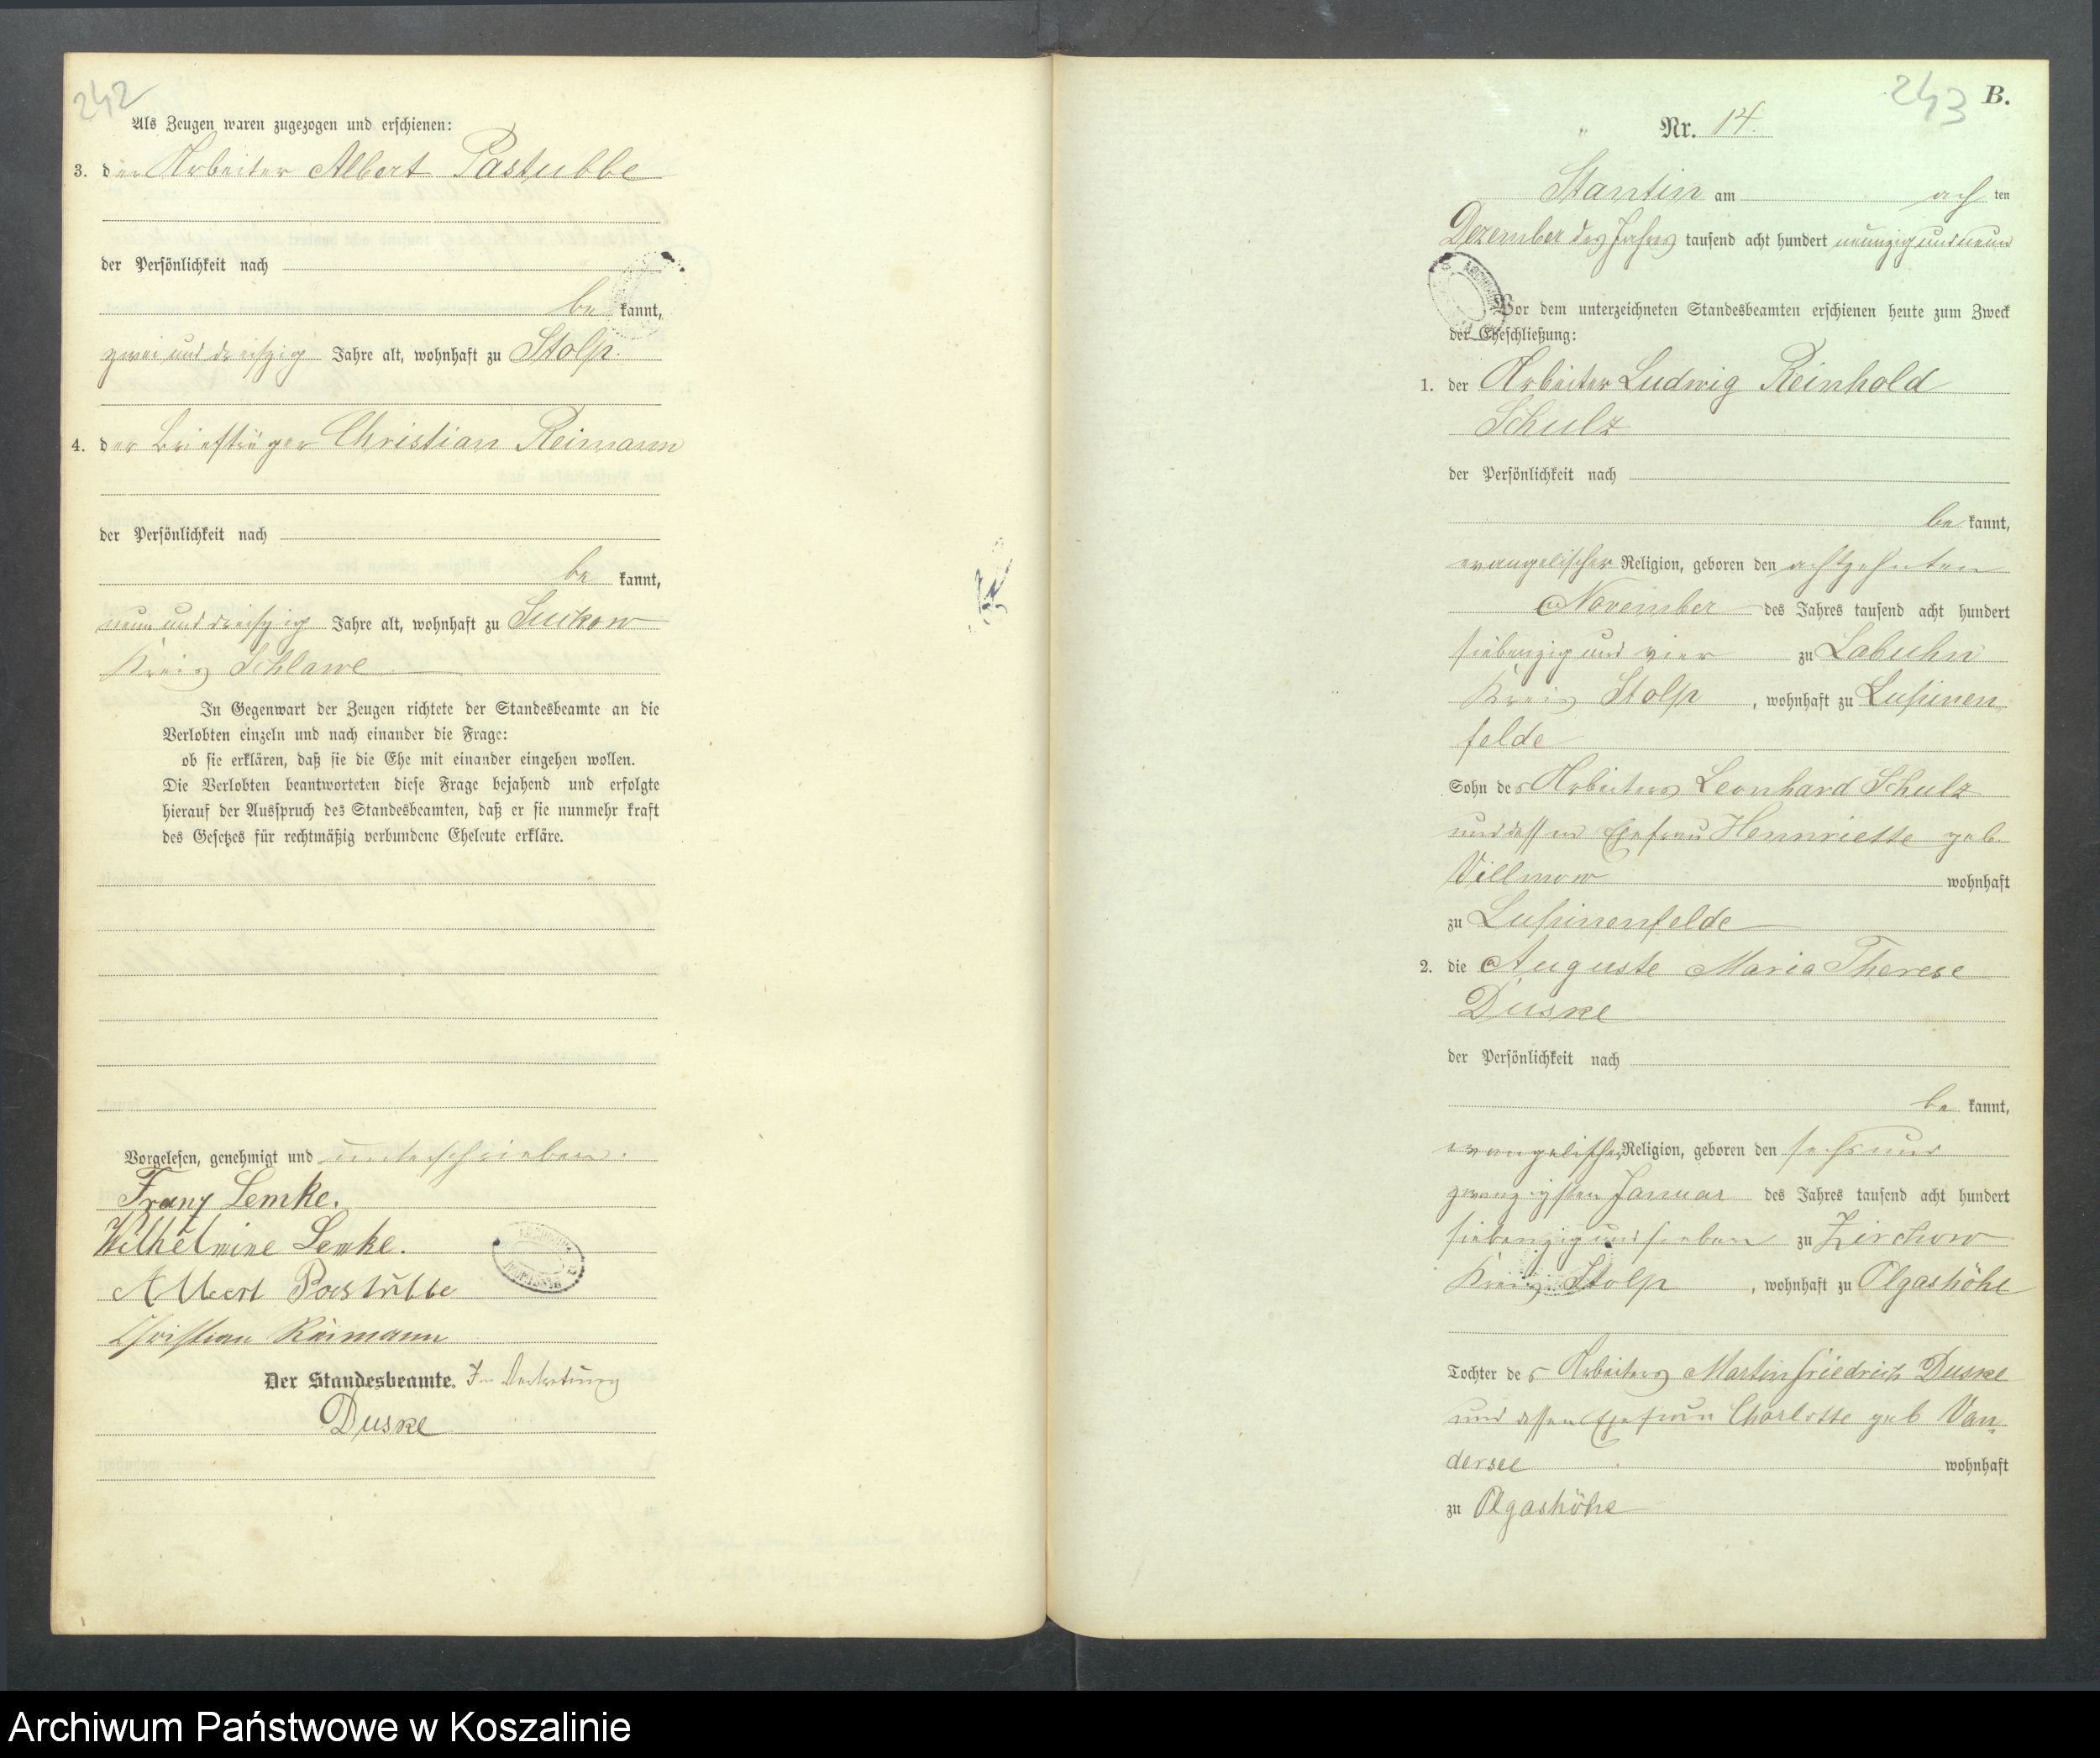 242
Als Zeugen waren zugezogen und erschienen:
3. der Arbeiter Albert Pastubbe
der Persönlichkeit nach
be kannt,
zwei und dreißzig Jahre alt, wohnhaft zu Stolp.
4. der Briefträger Christian Reimann
der Persönlichkeit nach
be kannt,
neun und dreißzig Jahre alt, wohnhaft zu Suckow
Kreis Schlawe
In Gegenwart der Zeugen richtete der Standesbeamte an die
Verlobten einzeln und nach einander die Frage:
ob sie erklären, daß sie die Ehe mit einander eingehen wollen.
Die Verlobten beantworteten diese Frage bejahend und erfolgte
hierauf der Ausspruch des Standesbeamten, daß er sie nunmehr kraft
des Gesetzes für rechtmäßig verbundene Eheleute erkläre.
Vorgelesen, genehmigt und unterschrieben.
Franz Lemke.
Wilhelmine Lemke.
Albert Pastubbe
Christian Reimann
Der Standesbeamte. In Vertretung
Duske
243 B.
Nr. 14.
Stantin am ach ten
Dezember des Jahres tausend acht hundert neunzig und neun
Vor dem unterzeichneten Standesbeamten erschienen heute zum Zweck
der Eheschließung:
1. der Arbeiter Ludwig Reinhold
Schulz
der Persönlichkeit nach
be kannt,
evangelischer Religion, geboren den achtzehnten
November des Jahres tausend acht hundert
siebenzig und vier zu Labuhn
Kreis Stolp, wohnhaft zu Lupinen
felde
Sohn des Arbeiters Leonhard Schulz
und dessen Ehefrau Hennriette geb.
Villmow wohnhaft
zu Lupinenfelde
2. die Auguste Maria Therese
Duske
der Persönlichkeit nach
be kannt,
evangelischer Religion, geboren den sechs und
zwanzigsten Januar des Jahres tausend acht hundert
siebenzig und sieben zu Zirchow
Kreis Stolp, wohnhaft zu Olgashöhe
Tochter des Arbeiters Martin Friedrich Duske
und dessen Ehefrau Charlotte geb Van
dersee wohnhaft
zu Olgashöhe
Archiwum Państwowe w Koszalinie